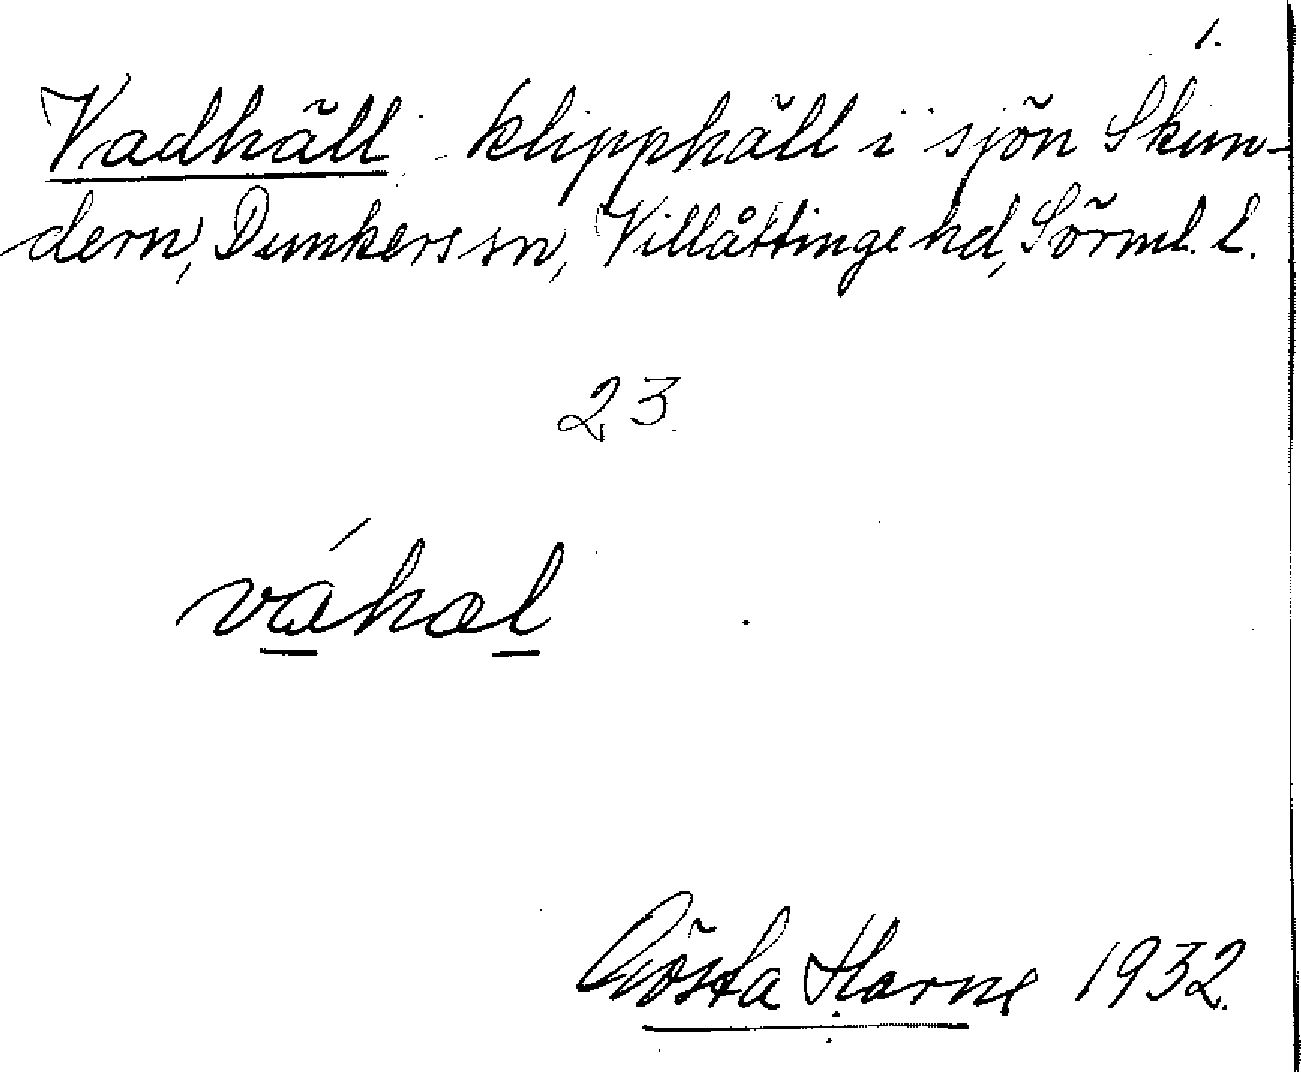 1.
Vadhäll klipphäll i sjön Skun-
dern, Dunkers sn, Villåttinge hd, Sörml. l.
23
váhæl
Gösta Harne 1932.